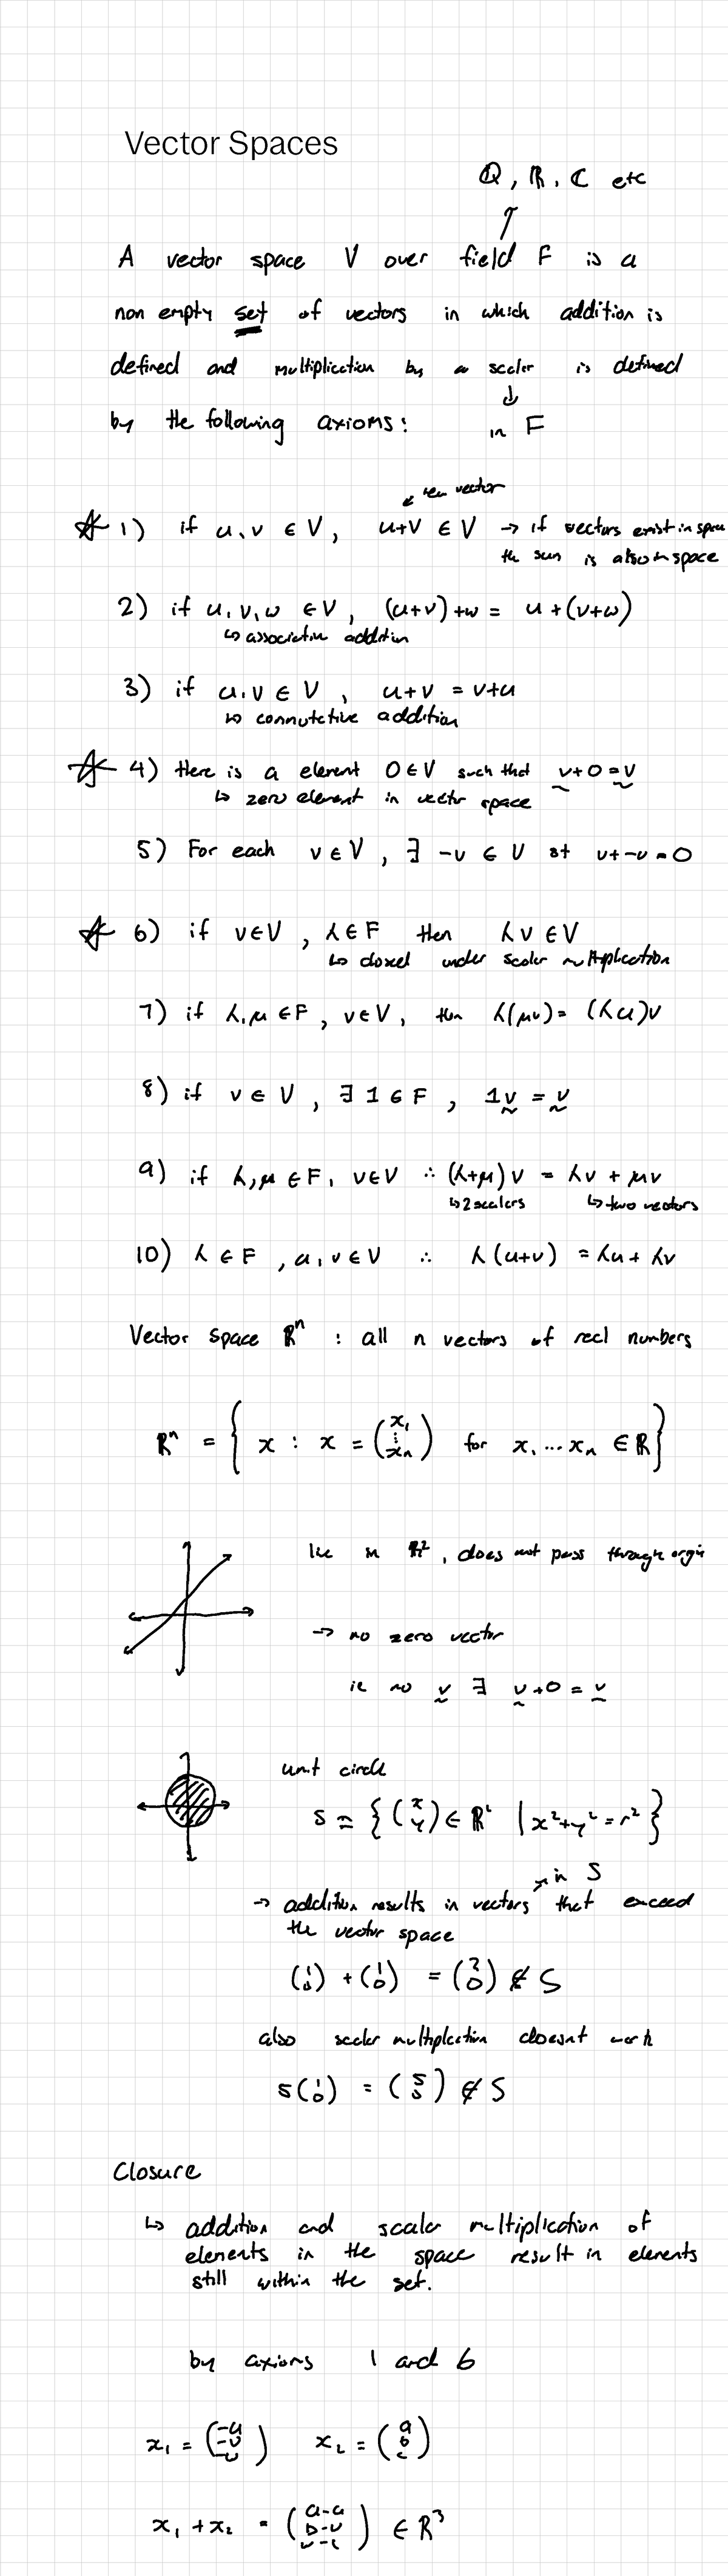 Vector Spaces
Q, R, C etc
A vector space V over field F is a
non empty set of vectors in which addition is
defined and multiplication by a scaler is defined
by the following axioms: in F
new vector
1) if u, v ∈ V, u+v ∈ V → if vectors exist in space
the sum is also in space
2) if u, v, w ∈ V, (u+v)+w = u+(v+w)
↳ associative addition
3) if u, v ∈ V, u+v = v+u
↳ commutative addition
4) there is a element 0 ∈ V such that v+0=v
↳ zero element in vector space
5) For each v ∈ V, ∃ -v ∈ V st v+-v=0
6) if v ∈ V, λ ∈ F then λv ∈ V
↳ closed under scaler multiplication
7) if λ, μ ∈ F, v ∈ V, then λ(μv) = (λμ)v
8) if v ∈ V, ∃ 1 ∈ F, 1v = v
9) if λ, μ ∈ F, v ∈ V ∴ (λ+μ)v = λv + μv
↳ 2 scalers ↳ two vectors
10) λ ∈ F, u, v ∈ V ∴ λ(u+v) = λu + λv
Vector space Rⁿ : all n vectors of real numbers
Rⁿ = { x : x = (x₁ ⋮ xₙ) for x₁ ... xₙ ∈ R }
line in R², does not pass through orgin
→ no zero vector
ie no v ∃ v+0 = v
unit circle
S = { (x y) ∈ R² | x²+y²=r² }
in S
→ addition results in vectors that exceed
the vector space
(1 0) + (1 0) = (2 0) ∉ S
also scaler multiplication doesnt work
5(1 0) = (5 5) ∉ S
Closure
↳ addition and scalar multiplication of
elements in the space result in elements
still within the set.
by axioms 1 and 6
x₁ = (-u -v -w) x₂ = (a b c)
x₁ + x₂ = (a-u b-v w-c) ∈ R³